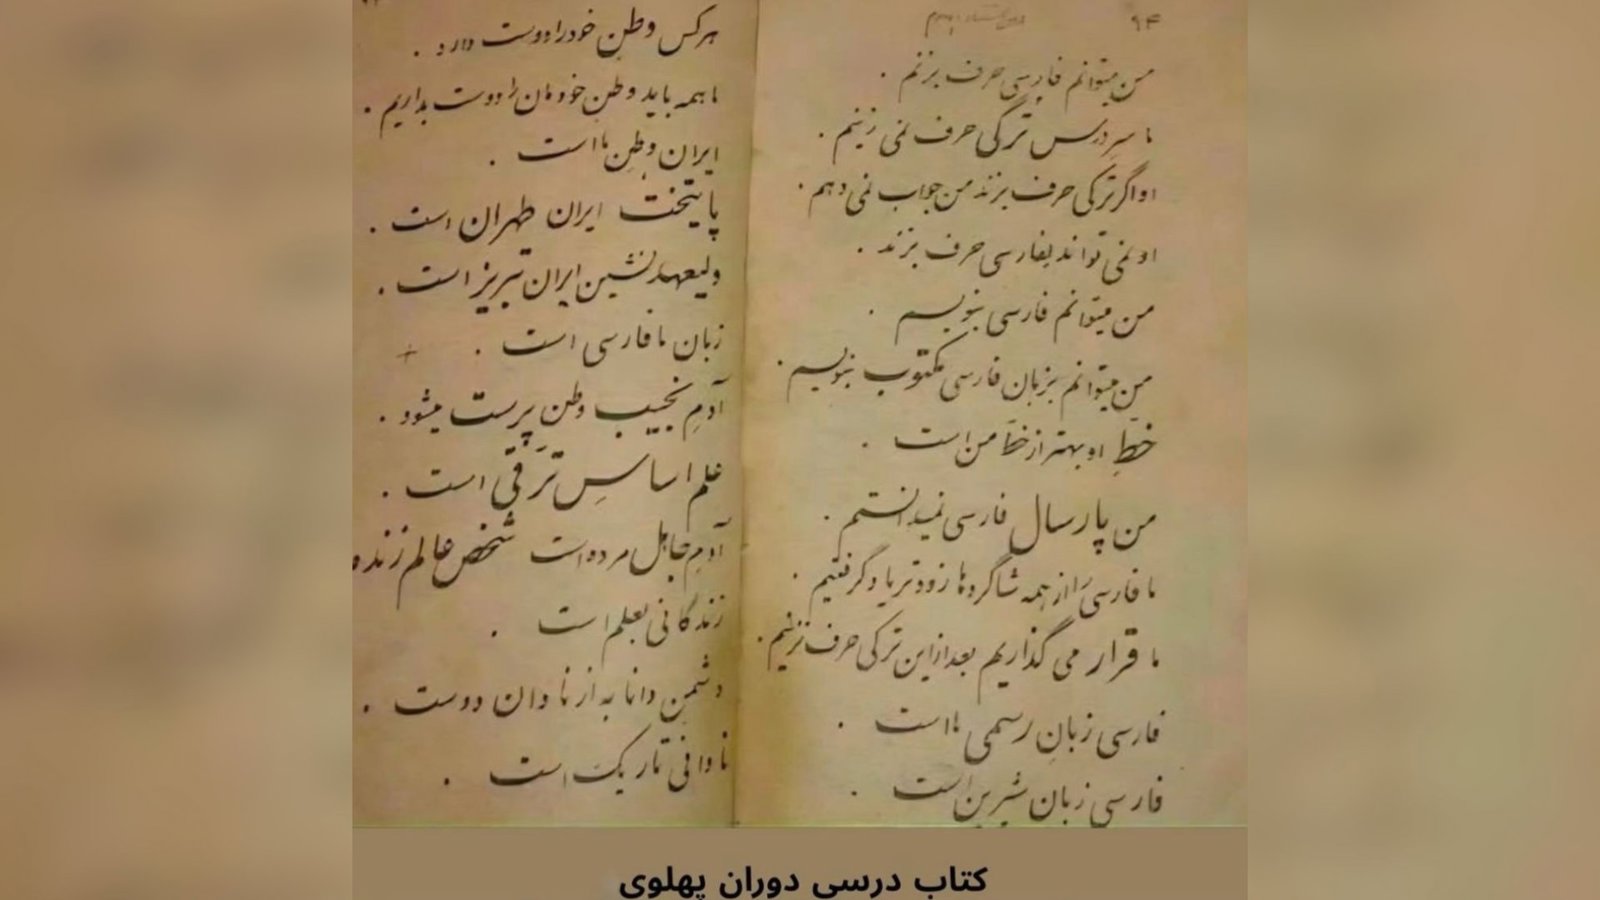 ۹۴
من میتوانم فارسی حرف بزنم .
ما سرِ درس ترکی حرف نمی زنیم .
او اگر ترکی حرف بزند من جواب نمی دهم .
او نمی تواند بفارسی حرف بزند .
من میتوانم فارسی بنویسم .
من میتوانم بزبان فارسی مکتوب بنویسم .
خطِّ او بهتر از خطّ من است .
من پارسال فارسی نمیدانستم .
ما فارسی را از همه شاگردها زودتر یاد گرفتیم .
ما قرار می گذاریم بعد از این ترکی حرف نزنیم .
فارسی زبانِ رسمی ما است .
فارسی زبان شیرین است .
هر کس وطنِ خود را دوست دارد .
ما همه باید وطنِ خودمان را دوست بداریم .
ایران وطنِ ما است .
پایتخت ایران طهران است .
ولیعهد نشین ایران تبریز است .
زبان ما فارسی است .
آدمِ نجیب وطن پرست میشود .
علم اساسِ تَرَقّی است .
آدمِ جاهل مرده است شخص عالم زنده
زندگانی بعلم است .
دشمنِ دانا به از نادان دوست .
نادانی تاریک است .
کتاب درسی دوران پهلوی